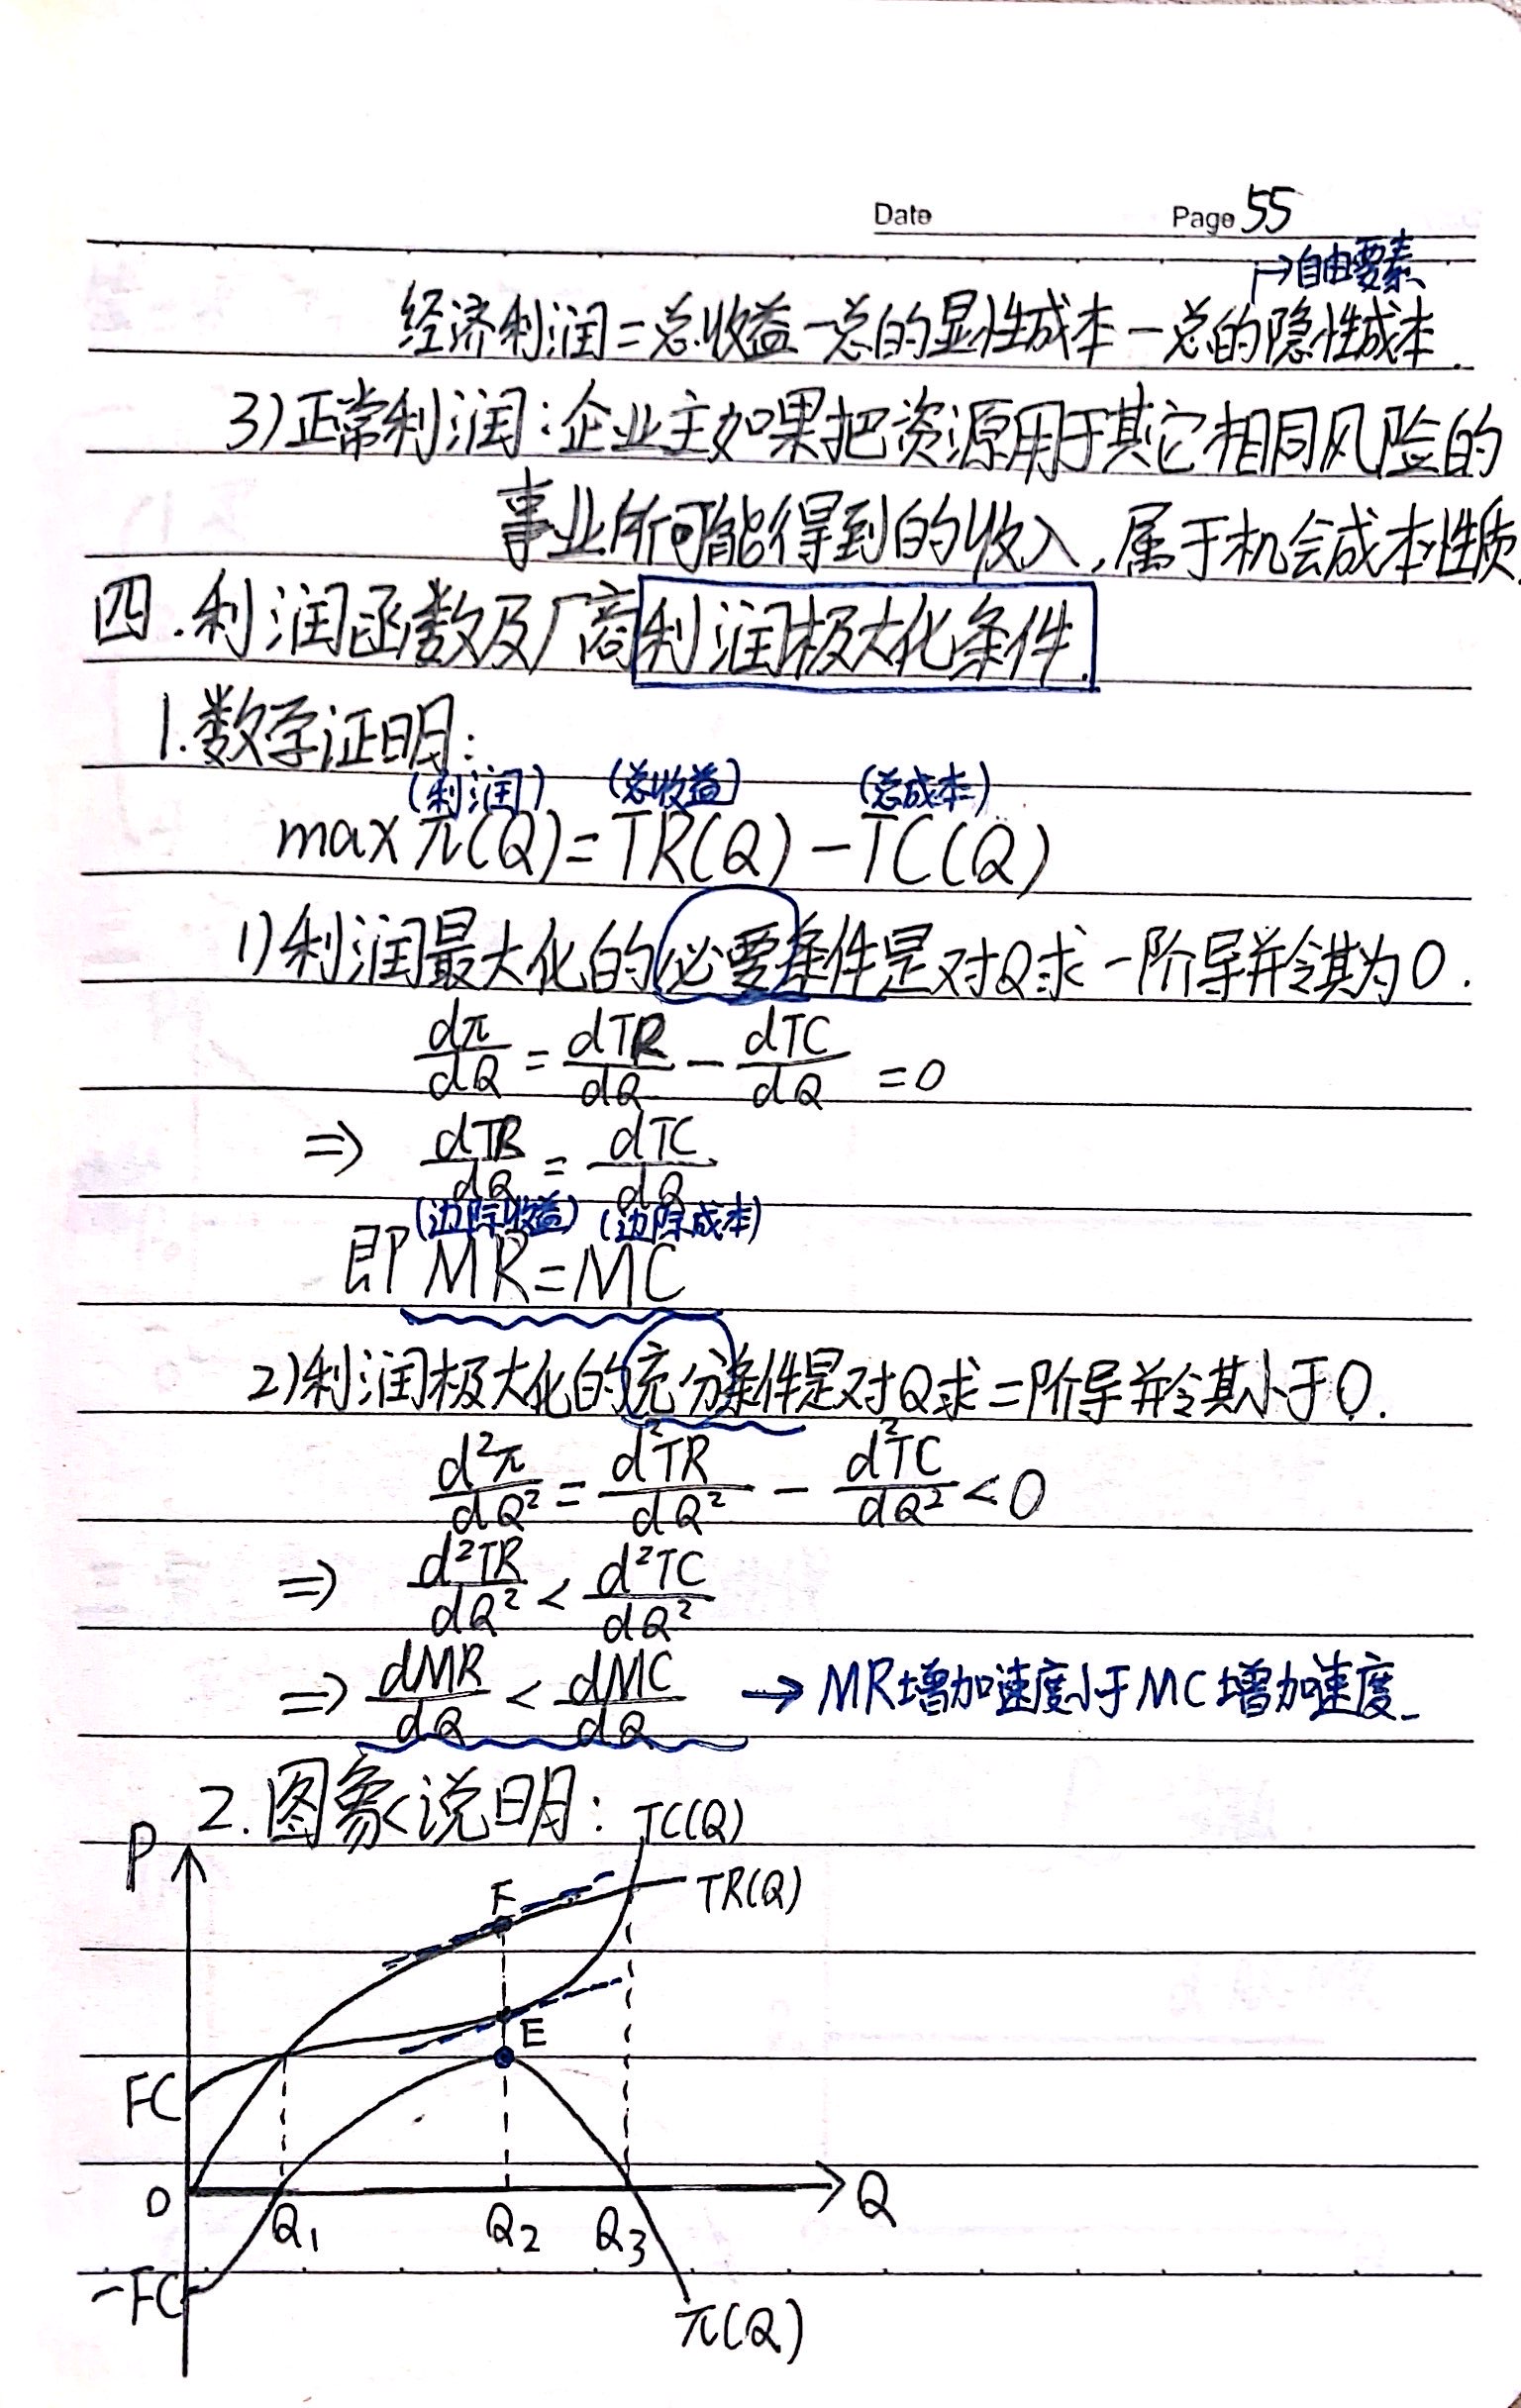 Date Page 55
→自由要素
经济利润=总收益-总的显性成本-总的隐性成本.
3)正常利润:企业主如果把资源用于其它相同风险的
事业所可能得到的收入,属于机会成本性质.
四.利润函数及厂商利润极大化条件.
1.数学证明:
(利润) (总收益) (总成本)
max π(Q)=TR(Q)-TC(Q)
1)利润最大化的必要条件是对Q求一阶导并令其为0.
dπ/dQ = dTR/dQ - dTC/dQ =0
⇒ dTR/dQ = dTC/dQ
(边际收益) (边际成本)
即 MR=MC
2)利润极大化的充分条件是对Q求二阶导并令其小于0.
d²π/dQ² = d²TR/dQ² - d²TC/dQ² <0
⇒ d²TR/dQ² < d²TC/dQ²
⇒ dMR/dQ < dMC/dQ → MR增加速度小于MC增加速度.
2.图象说明:
TC(Q)
P
TR(Q)
F
E
FC
0
Q
Q₁ Q₂ Q₃
-FC
π(Q)